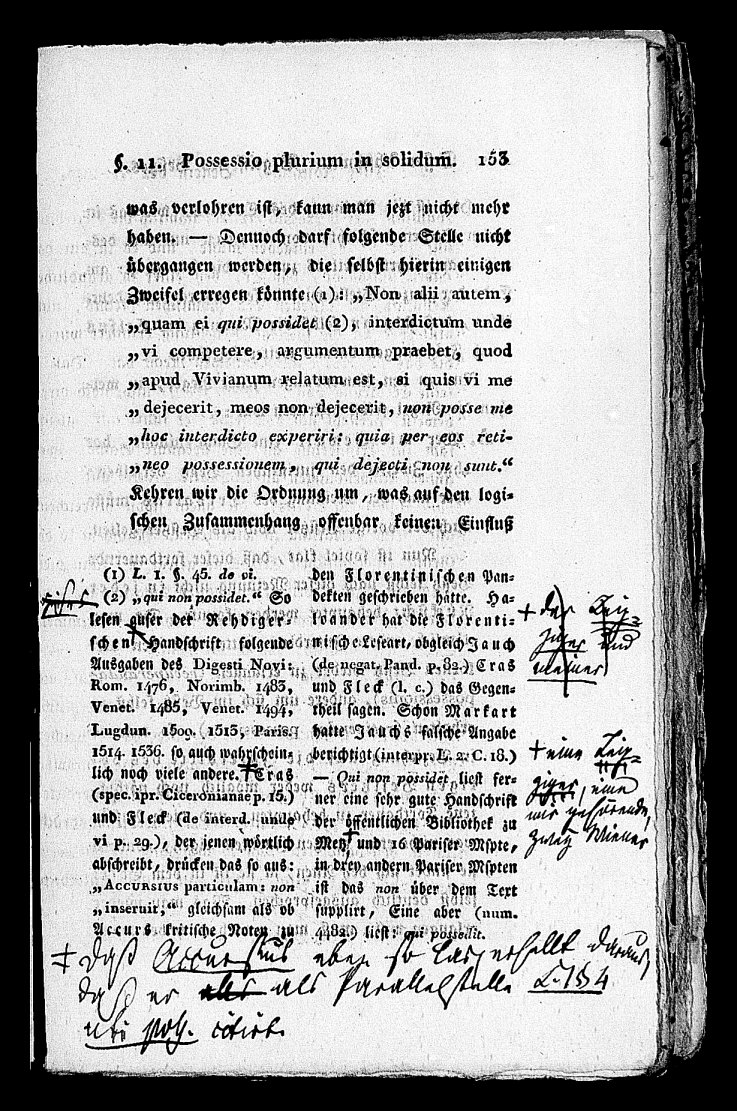 §. 11. Possessio plurium in solidum. 153
was verlohren ist, kann man jezt nicht mehr
haben. — Dennoch darf folgende Stelle nicht
übergangen werden, die selbst hierin einigen
Zweifel erregen könnte (1): „Non alii autem,
„quam ei qui possidet (2), interdictum unde
„vi competere, argumentum praebet, quod
„apud Vivianum relatum est, si quis vi me
„dejecerit, meos non dejecerit, non posse me
„hoc interdicto experiri: quia per eos reti-
„neo possessionem, qui dejecti non sunt.“
Kehren wir die Ordnung um, was auf den logi-
schen Zusammenhang offenbar keinen Einfluß
(1) L. 1. §. 45. de vi.
(2) „qui non possidet.“ So
lesen auser der Rehdiger-
schen Handschrift folgende
Ausgaben des Digesti Novi:
Rom. 1476, Norimb. 1483,
Venet. 1485, Venet. 1494,
Lugdun. 1509. 1513, Paris.
1514. 1536. so auch wahrschein-
lich noch viele andere. Cras
(spec. ipr. Ciceronianae p. 15.)
und Fleck (de interd. unde
vi p. 29.), der jenen wörtlich
abschreibt, drücken das so aus:
„Accursius particulam: non
„inseruit,“ gleichsam als ob
Accurs kritische Noten zu
den Florentinischen Pan-
dekten geschrieben hätte. Ha-
loander hat die Florenti-
nische Leseart, obgleich Jauch
(de negat. Pand. p. 82.) Cras
und Fleck (l. c.) das Gegen-
theil sagen. Schon Markart
hatte Jauchs falsche Angabe
berichtigt (interpr. L. 2. C. 18.)
— Qui non possidet liest fer-
ner eine sehr gute Handschrift
der öffentlichen Bibliothek zu
Metz und 16 Pariser Mspte,
in drey andern Pariser Mspten
ist das non über dem Text
supplirt, Eine aber (num.
4482.) liest: qui possedit.
+ der Leip-
ziger und
meiner
+ eine Leip-
ziger, eine
mir gehörende,
zwey Wiener
‡ daß Accursius eben so las, erhellt daraus,
daß er als Parallelstelle L. 1 § 4
uti poss. citirt.